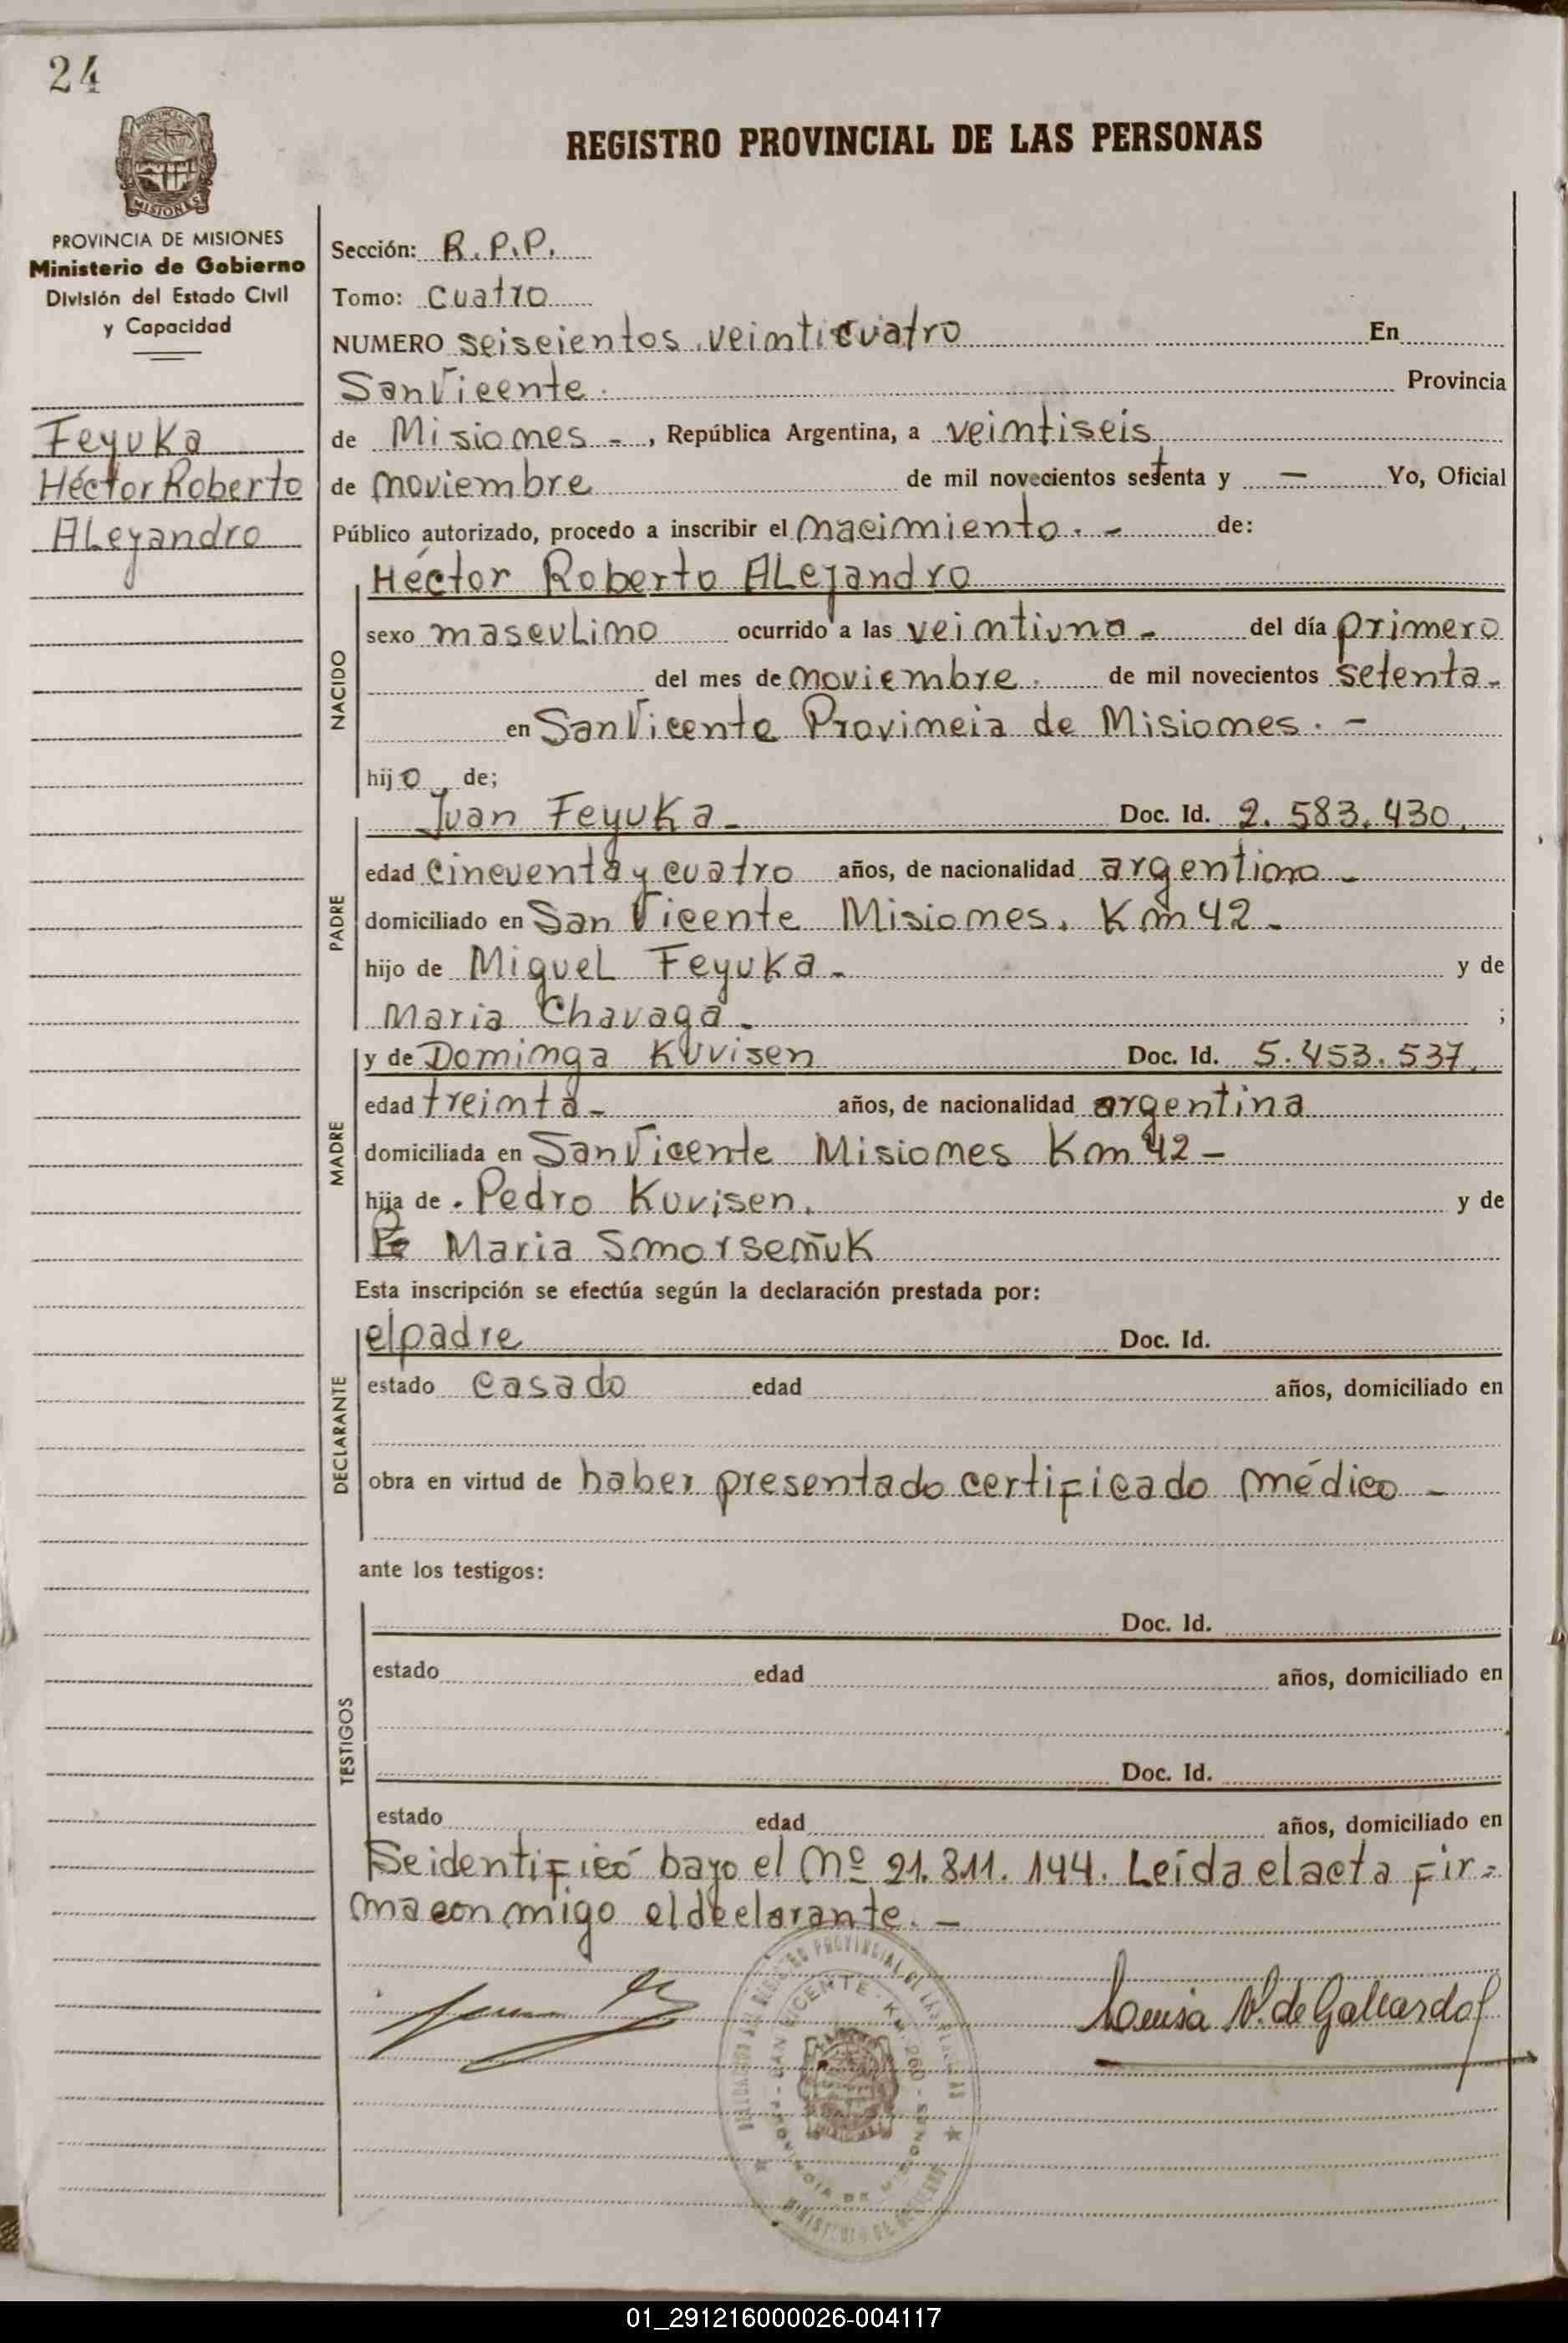 24
PROVINCIA DE MISIONES
Ministerio de Gobierno
División del Estado Civil
y Capacidad
Feyuka
Héctor Roberto
ALejandro
REGISTRO PROVINCIAL DE LAS PERSONAS
Sección: R.P.P.
Tomo: cuatro
NUMERO seiscientos veinticuatro En
San Vicente. Provincia
de Misiones -, República Argentina, a veintiseis
de noviembre de mil novecientos setenta y — Yo, Oficial
Público autorizado, procedo a inscribir el nacimiento. - de:
NACIDO
Héctor Roberto ALejandro
sexo mascuLino ocurrido a las veintiuna - del día primero
del mes de noviembre. de mil novecientos setenta -
en San Vicente Provincia de Misiones. -
hijo de;
PADRE
Juan Feyuka - Doc. Id. 2.583.430.
edad cincuenta y cuatro años, de nacionalidad argentino -
domiciliado en San Vicente Misiones. Km 42 -
hijo de MigueL Feyuka - y de
Maria Chavaga - ;
MADRE
y de Dominga Kuvisen Doc. Id. 5.453.537.
edad treinta - años, de nacionalidad argentina
domiciliada en San Vicente Misiones Km 42 -
hija de . Pedro Kuvisen. y de
Maria Smorseñuk
Esta inscripción se efectúa según la declaración prestada por:
DECLARANTE
el padre Doc. Id.
estado casado edad años, domiciliado en
obra en virtud de haber presentado certificado médico -
ante los testigos:
TESTIGOS
Doc. Id.
estado edad años, domiciliado en
Doc. Id.
estado edad años, domiciliado en
Se identificó bajo el Nº 21.811.144. Leída el acta fir=
ma conmigo el declarante. -
Louisa N. de Gallardo
SAN VICENTE - KM. 260 -
PROVINCIA DE MISIONES
MINISTERIO DE GOBIERNO
01_291216000026-004117